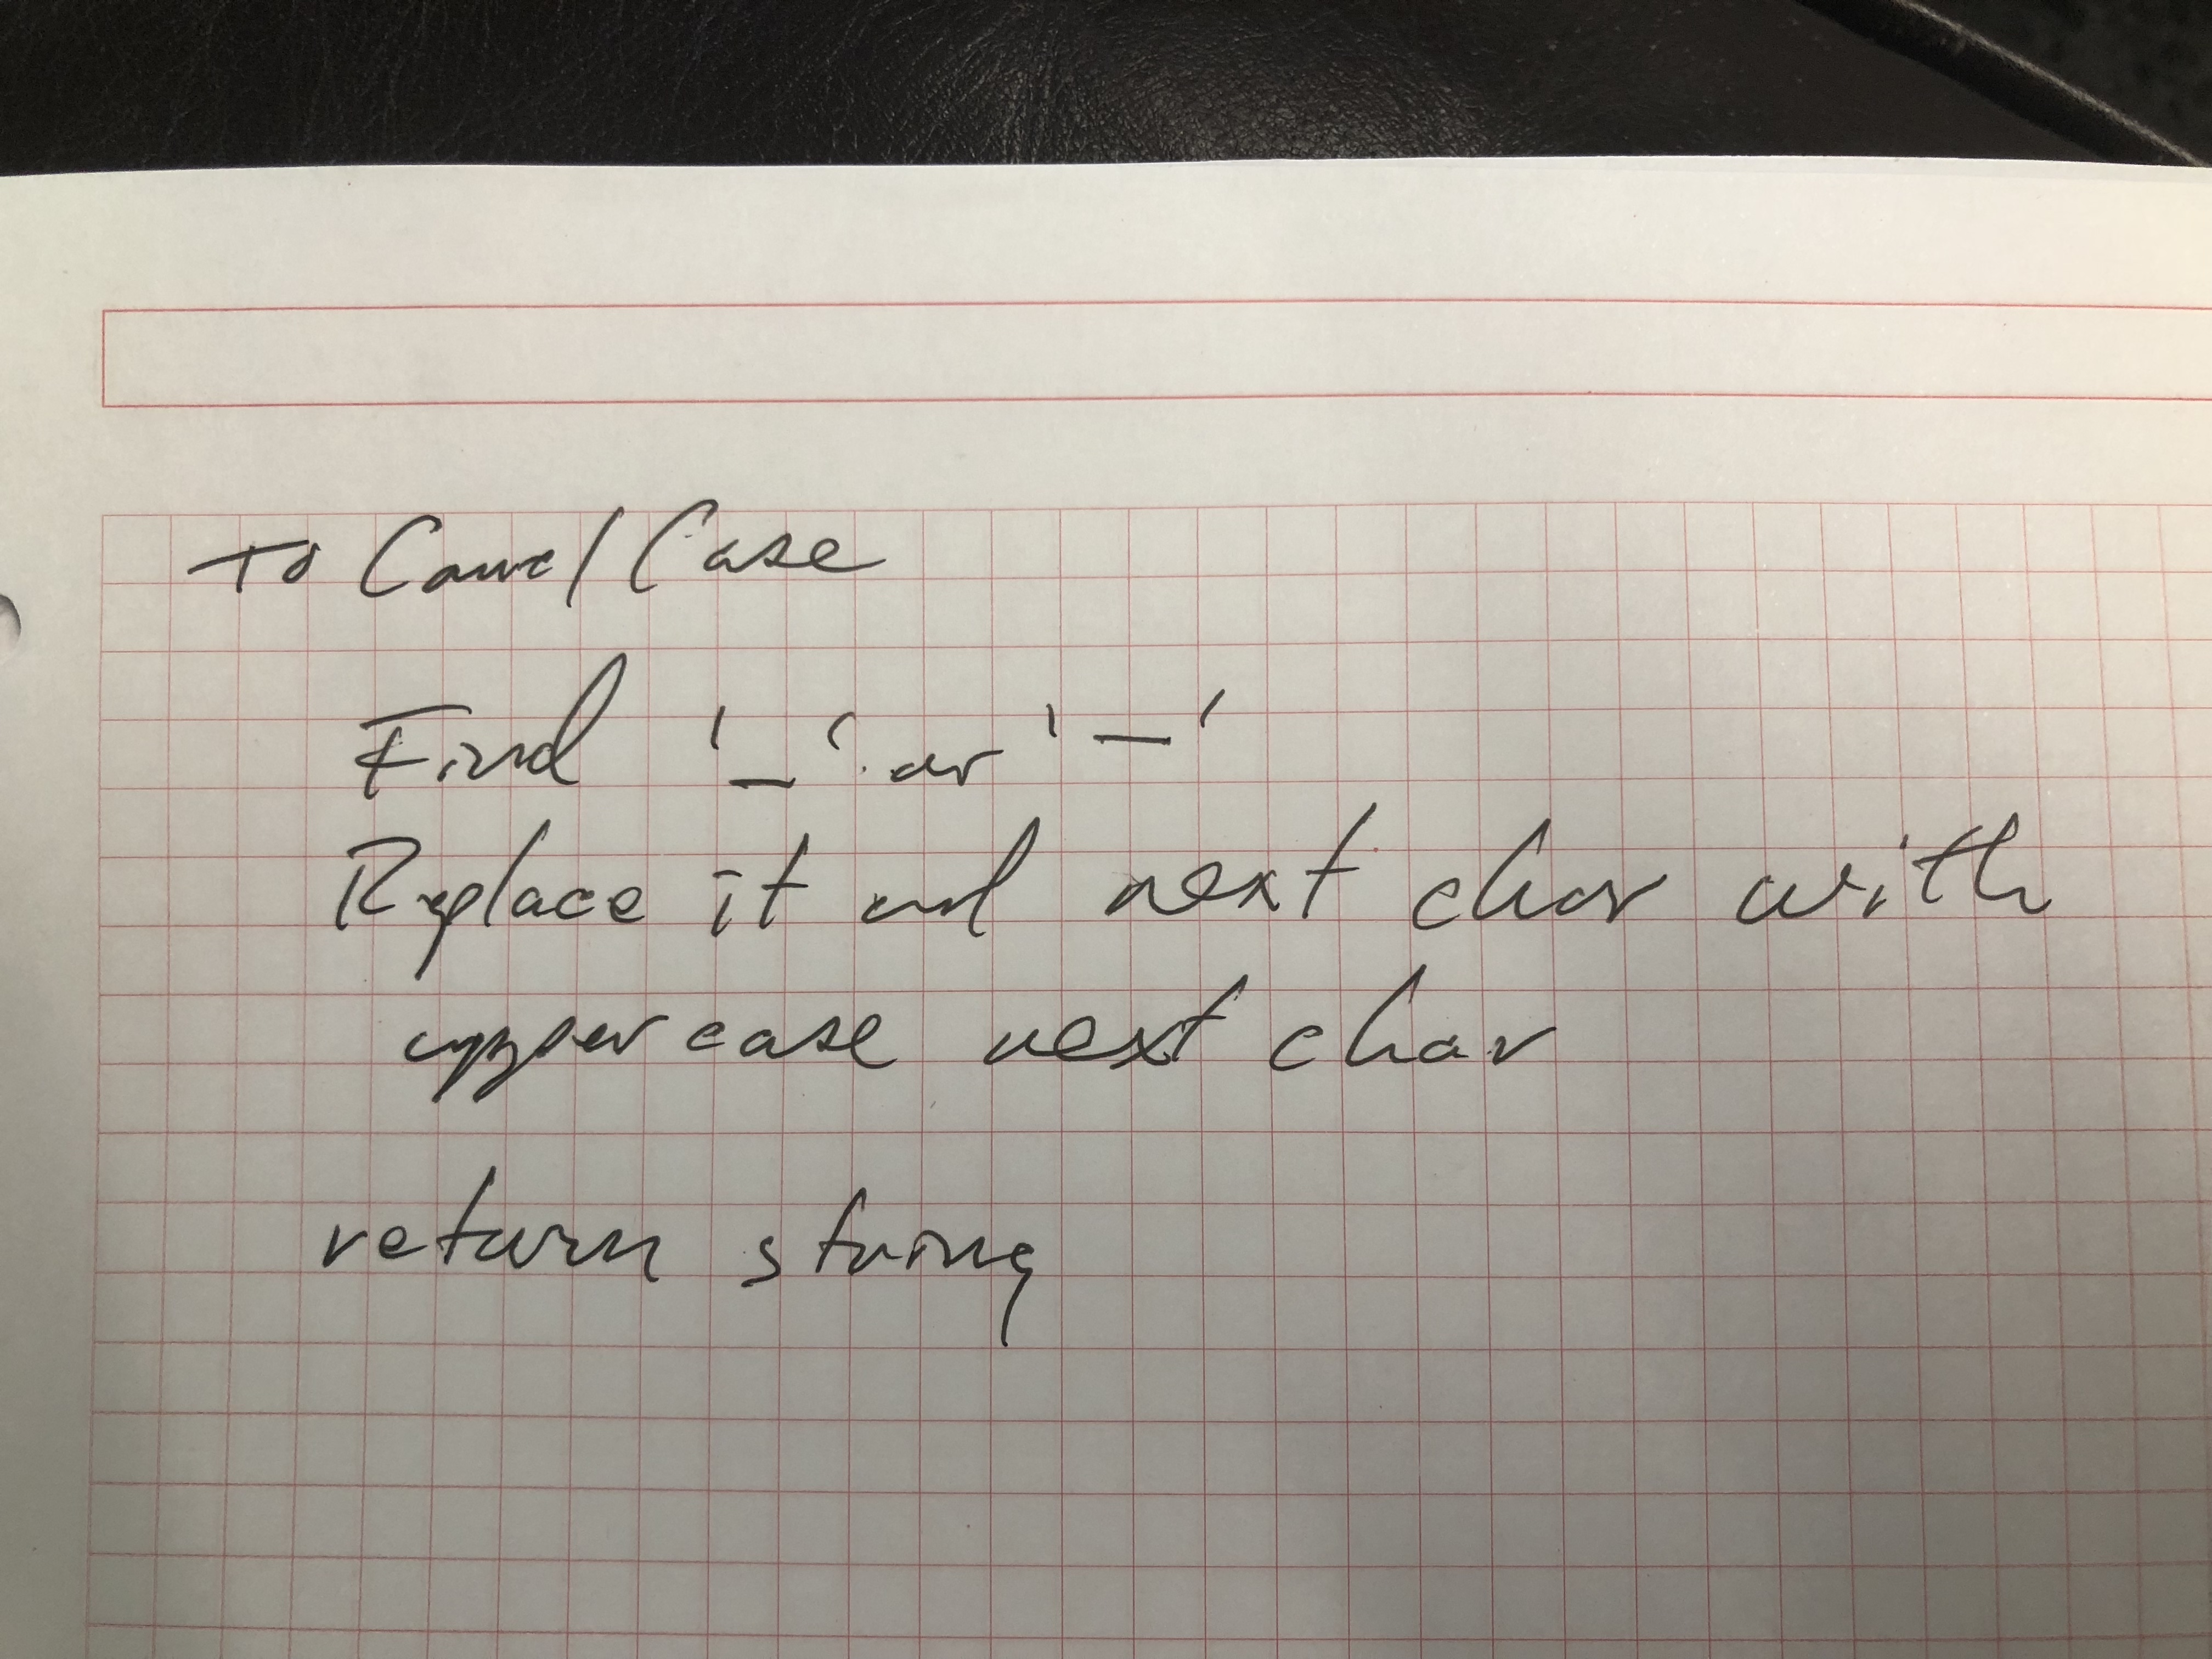 To Camel Case
Find '_' or '-'
Replace it and next char with
uppercase next char
return string